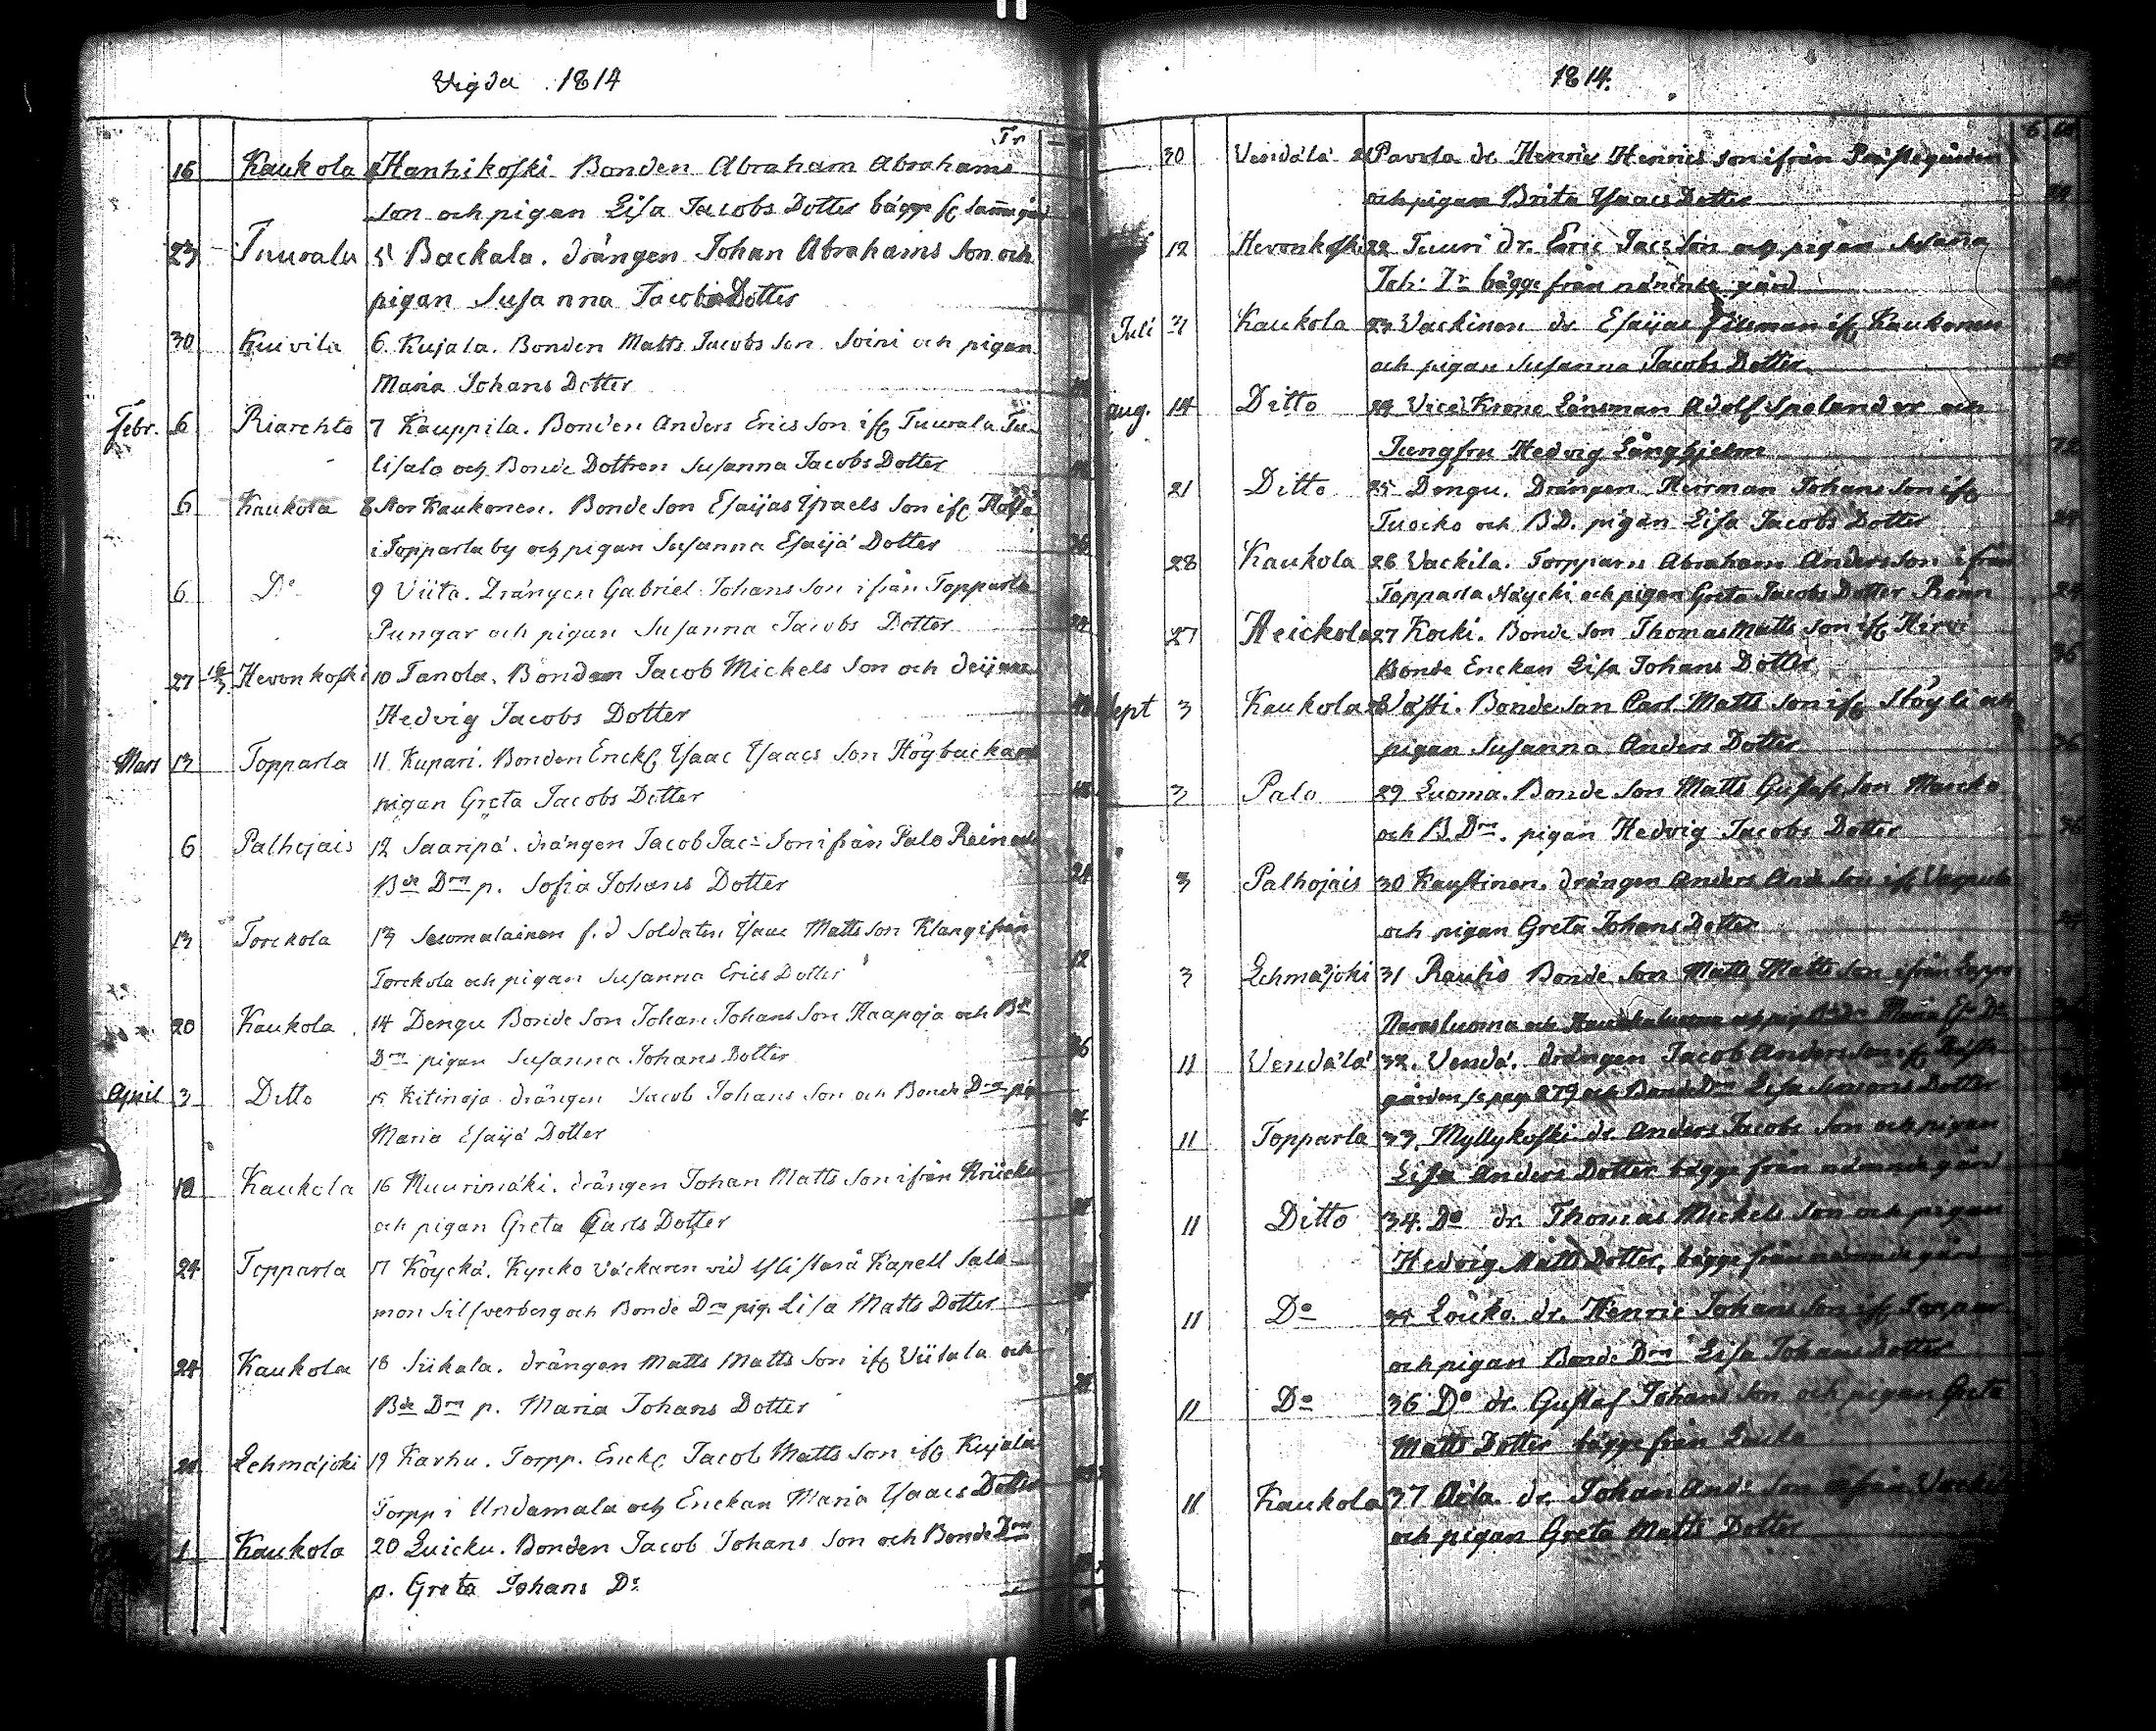 Vigda 1814
Tr
16 Kaukola Hanhikoski Bonden Abraham Abrahams
son och pigan Lisa Jacobs Dotter bägge fr samma gård
23 Tuurala 5 Backala. drängen Johan Abrahams Son och
pigan Susanna Jacobs Dotter
30 Kuivila 6. Kujala. Bonden Matts Jacobs Son Soini och pigan
Maria Johans Dotter
Febr. 6 Riarehto 7 Kauppila. Bonden Anders Erics Son ifr Tuurala
lisalo och Bonde Dottren Susanna Jacobs Dotter
6 Kaukola 8 Stor Kaukonen. Bonde Son Esaijas Israels Son ifr
i Topparla by och pigan Susanna Esaijä Dotter
6 Do 9 Viita. Drängen Gabriel Johans Son ifrån Topparla
Pungar och pigan Susanna Jacobs Dotter
27 Hevonkoski 10 Tanola. Bonden Jacob Mickels Son och
Hedvig Jacobs Dotter
Mars 13 Topparla 11 Kupari. Bonden Enckl Isaac Isaacs Son Högbacka
pigan Greta Jacobs Dotter
6 Palhojais 12 Saaripä. drängen Jacob Jac: Son ifrån Palo
Bde Drn p. Sofia Johans Dotter
13 Torckola 13 Suomalainen f.d Soldaten Isaac Matts Son Klang ifrån
Torckola och pigan Susanna Erics Dotter
20 Kaukola 14 Dengu Bonde Son Johan Johans Son Haapoja och Bde
Drn pigan Susanna Johans Dotter
April 3 Ditto 15 Kitinoja drängen Jacob Johans Son och Bonde Drn pig
Maria Esaijä Dotter
18 Kaukola 16 Muurimäki. drängen Johan Matts Son ifrån
och pigan Greta Carls Dotter
24 Topparla 17 Köyckä. Kyrcko väckaren vid Ylistaro Kapell Salo
mon Silfverberg och Bonde Drn pig. Lisa Matts Dotter
24 Kaukola 18 Siikala. drängen Matts Matts Son ifr Viitala och
Bde Drn p. Maria Johans Dotter
Lehmäjoki 19 Karhu. Torpp. Enckl Jacob Matts Son ifr Kujala
Torpp i Undamala och Enckan Maria Isaacs Dotter
1 Kaukola 20 Luicku. Bonden Jacob Johans Son och Bonde Drn
p. Greta Johans Dr
1814.
30 Vendälä 21 Pavola dr. Henric Henrics Son ifrån Prästegården
och pigan Brita Isaacs Dotter
12 Hevonkoski 22 Tuuri dr. Eric Jac: Son och pigan Susanna
Joh: Dr bägge från nämnde gård
Juli 31 Kaukola 23 Vackinen dr. Esaijas ifr Kaukonen
och pigan Susanna Jacobs Dotter
aug. 14 Ditto 24 Vice Krono Länsman Adolf och
Jungfru Hedvig Långhjelm
21 Ditto 25 Dengu. Drängen Herrman Johans Son ifr
Tuocko och B.D. pigan Lisa Jacobs Dotter
28 Kaukola 26 Vackila. Torpparn Abraham Anders Son ifrån
Topparla och pigan Greta Jacobs Dotter
27 Heickola 27 Kocki. Bonde Son Thomas Matts Son ifr Hirvi
Bonde Enckan Lisa Johans Dotter
Sept 3 Kaukola 28 Bonde Son Carl Matts Son ifr och
pigan Susanna Anders Dotter
3 Palo 29 Luoma. Bonde Son Matts Gustafs Son
och B Drn. pigan Hedvig Jacobs Dotter
3 Palhojais 30 Kaustinen. drängen Anders And: Son ifr
och pigan Greta Johans Dotter
3 Lehmäjoki 31 Rauhio Bonde Son Matts Matts Son ifrån
11 Vendälä 32. Vendä. drängen Jacob Anders Son ifr Präst
gården se pag 279 och Bonde Drn Lisa Simons Dotter
11 Topparla 33. Myllykoski dr. Anders Jacobs Son och pigan
Lisa Anders Dotter bägge från nämnde gård
11 Ditto 34. Do dr. Thomas Mickels Son och pigan
Hedvig Matts Dotter, bägge från nämnde gård
11 Do 35 Louko. dr. Henric Johans Son ifr
och pigan Bonde Drn Lisa Johans Dotter
11 Do 36 Do dr. Gustaf Johans Son och pigan Greta
Matts Dotter bägge från
11 Kaukola 37 dr. Johan And: Son ifrån
och pigan Greta Matts Dotter